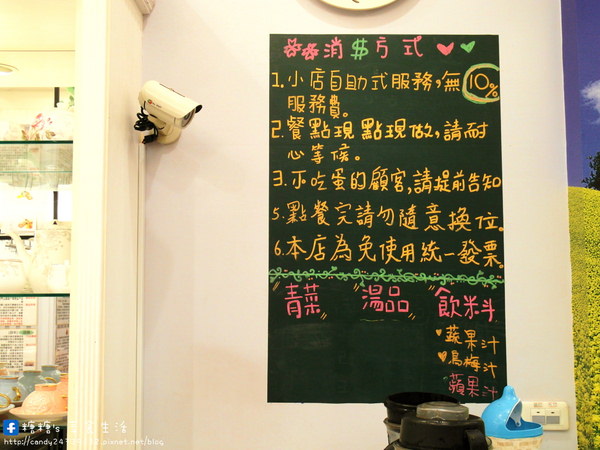 消$方式
1.小店自助式服務,無10%
服務費。
2.餐點現點現做,請耐
心等候。
3.不吃蛋的顧客,請提前告知
5.點餐完請勿隨意換位。
6.本店為免使用統一發票。
青菜 湯品 飲料
蔬果汁
烏梅汁
蘋果汁
糖糖's 生活